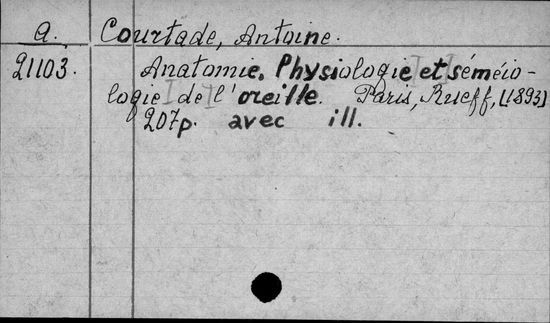 a. Courtade, Antoine.
21103. Anatomie, Physiologie et séméio-
logie de l'oreille. Paris, Rueff, [1893]
207p. avec ill.